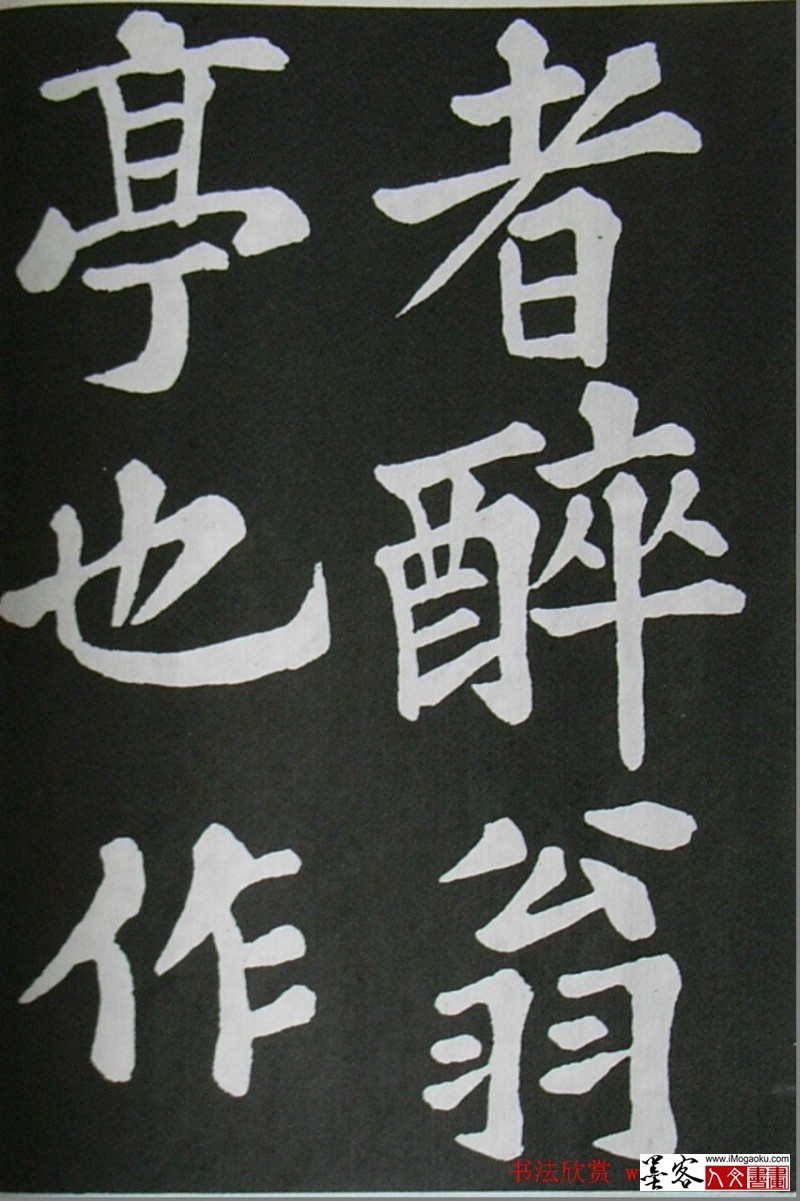 者醉翁
亭也作
书法欣赏 w
www.iMogaoku.com
墨客 人文書畫